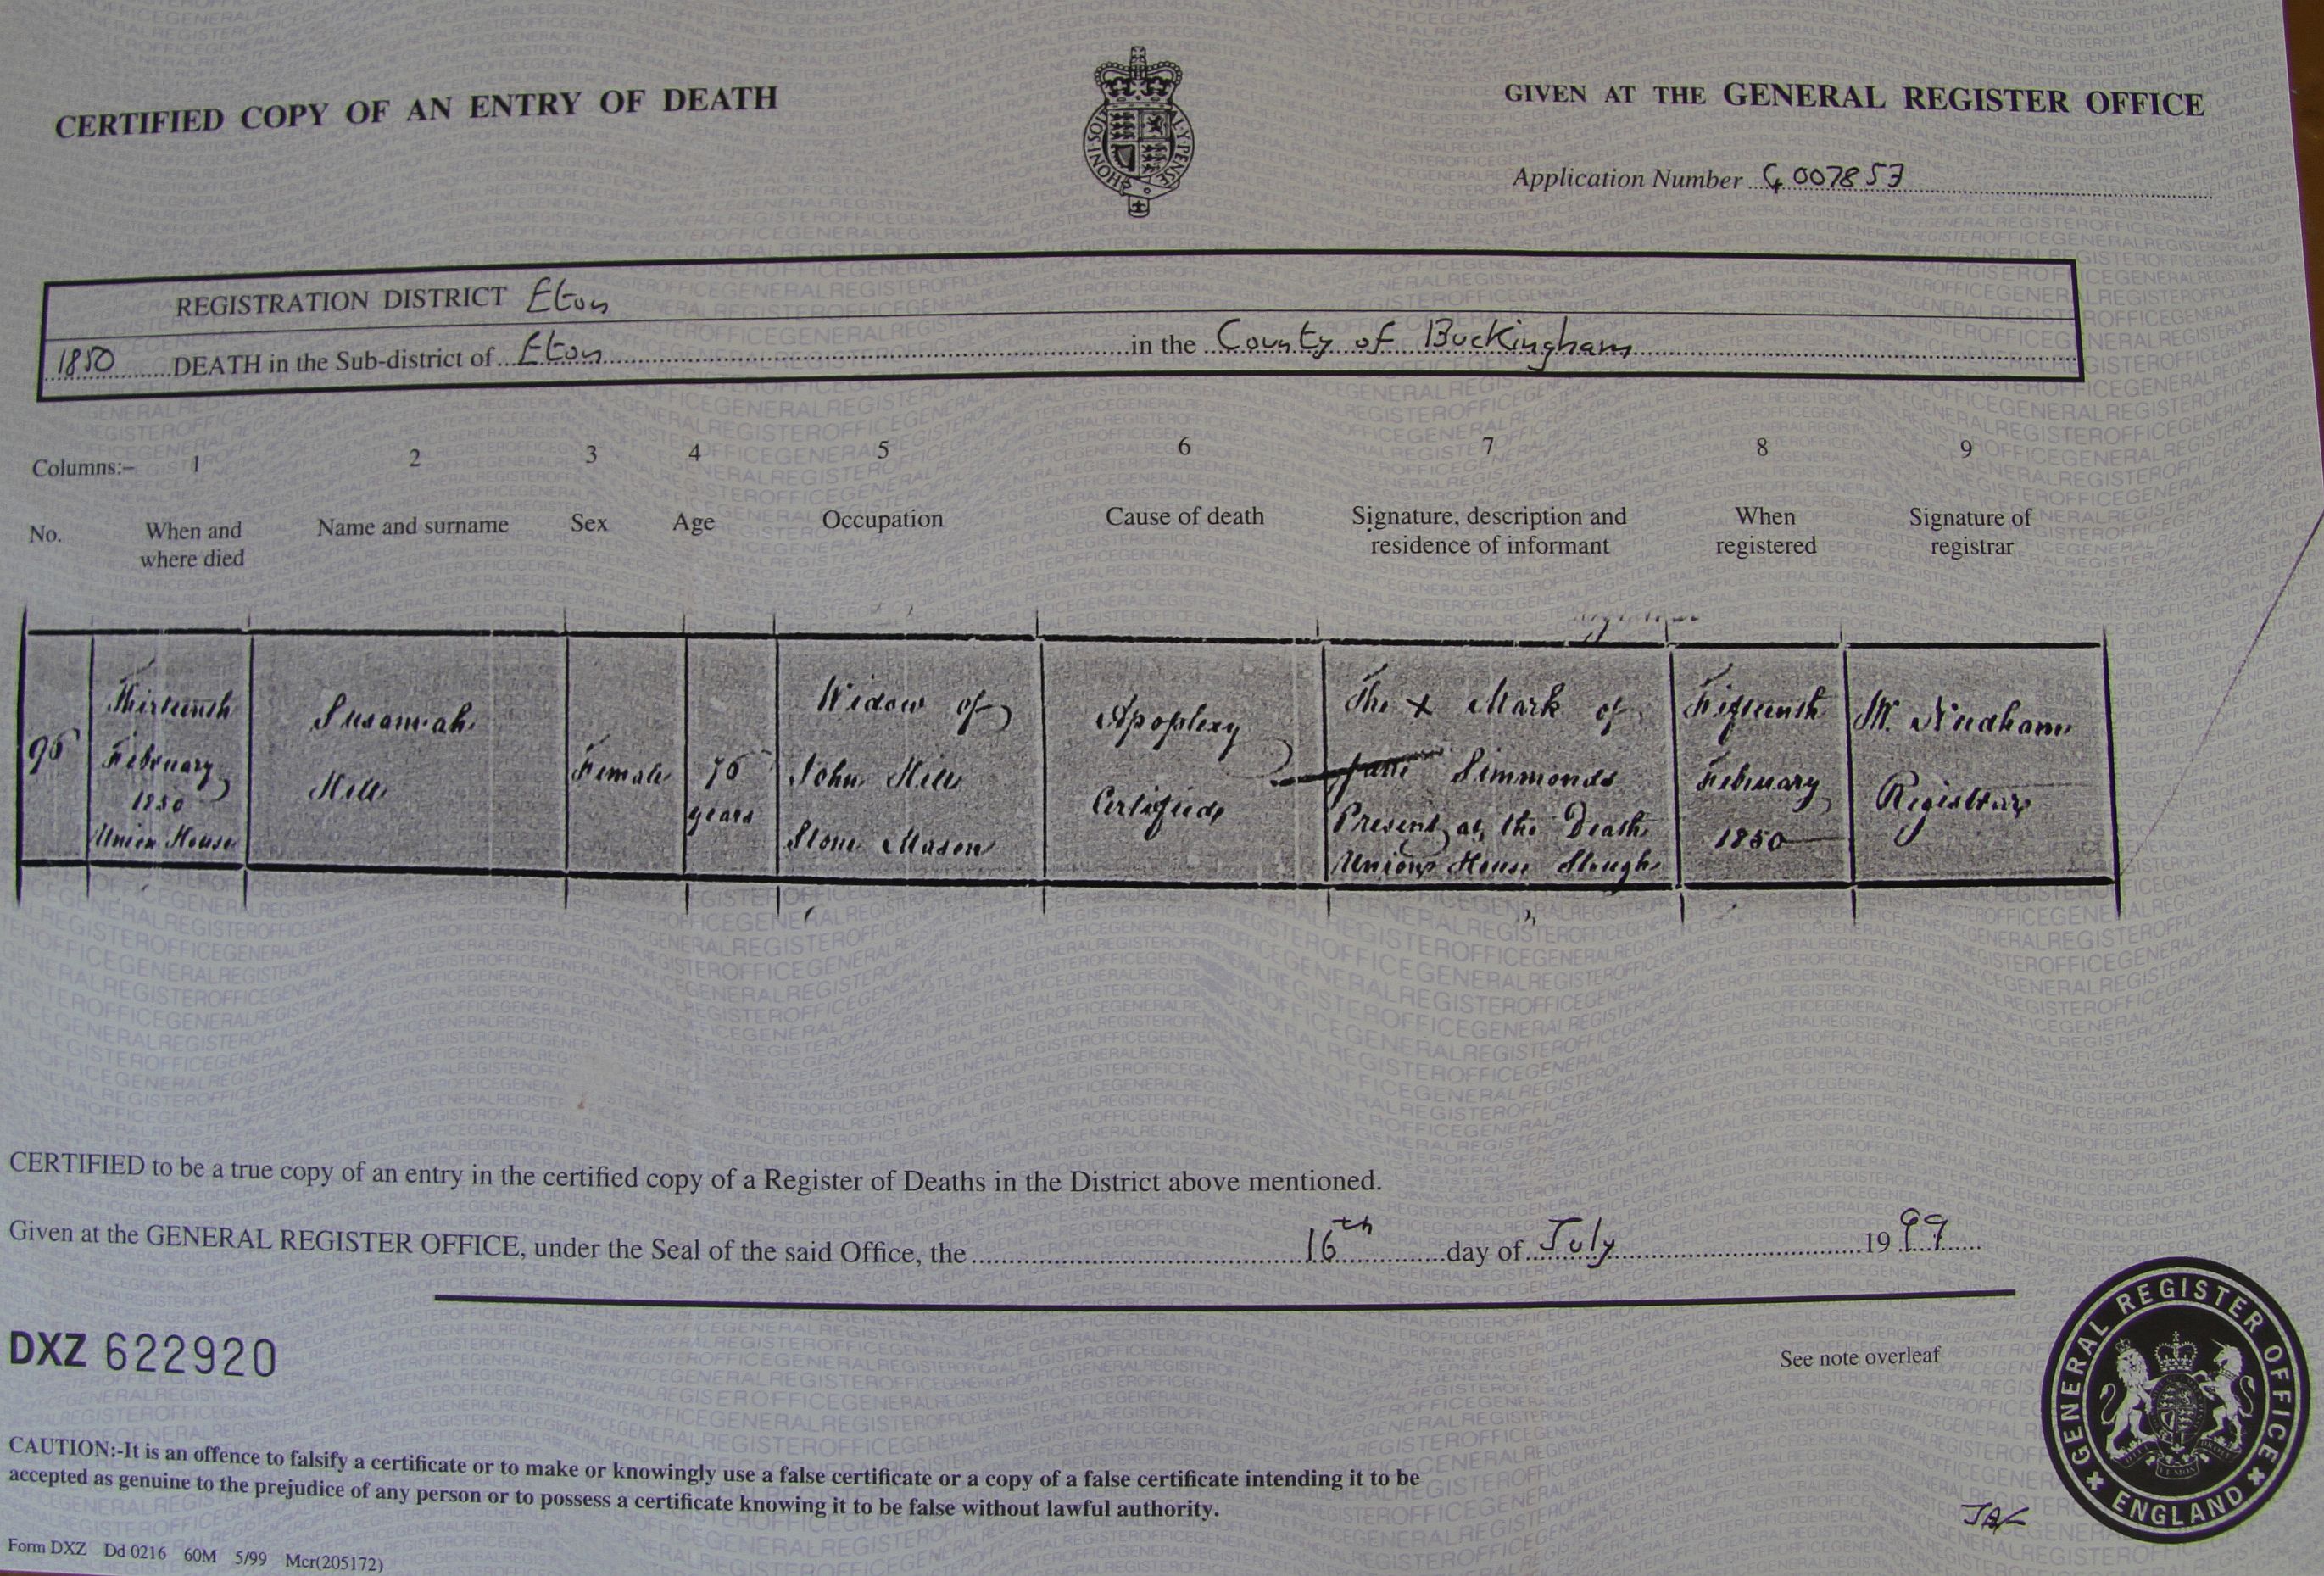 CERTIFIED COPY OF AN ENTRY OF DEATH
GIVEN AT THE GENERAL REGISTER OFFICE
HONI SOIT Q Y PENSE
Application Number G 007853
REGISTRATION DISTRICT Eton
1850 DEATH in the Sub-district of Eton in the County of Buckingham
Columns:- 1 2 3 4 5 6 7 8 9
No. When and where died Name and surname Sex Age Occupation Cause of death Signature, description and residence of informant When registered Signature of registrar
96
Thirteenth
February
1850
Union House
Susannah
Hill
Female
76
years
Widow of
John Hill
Stone Mason
Apoplexy
Certified
The X Mark of
Jane Simmonds
Present at the Death
Union House Slough
Fifteenth
February
1850
W. Needham
Registrar
CERTIFIED to be a true copy of an entry in the certified copy of a Register of Deaths in the District above mentioned.
Given at the GENERAL REGISTER OFFICE, under the Seal of the said Office, the 16th day of July 1999
DXZ 622920
See note overleaf
GENERAL REGISTER OFFICE
ENGLAND
CAUTION:-It is an offence to falsify a certificate or to make or knowingly use a false certificate or a copy of a false certificate intending it to be
accepted as genuine to the prejudice of any person or to possess a certificate knowing it to be false without lawful authority.
Form DXZ Dd 0216 60M 5/99 Mcr(205172)